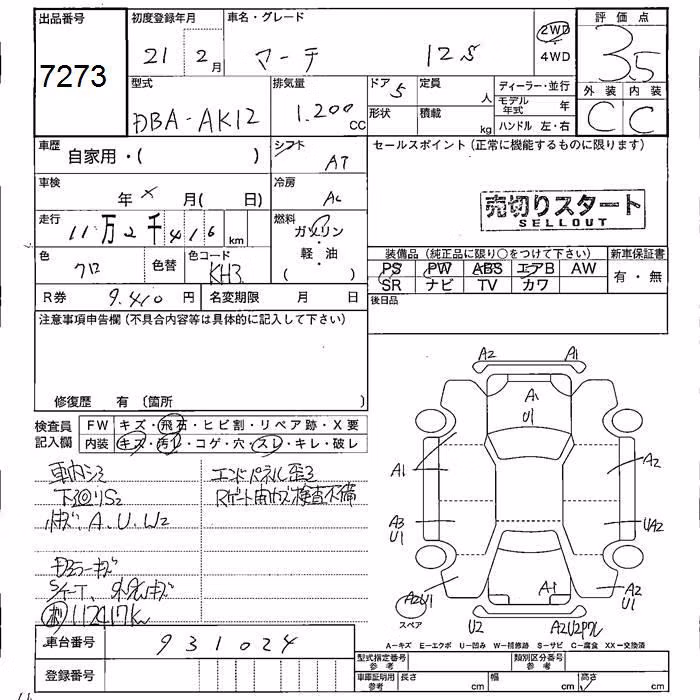 出品番号
7273
初度登録年月
21 2月
車名・グレード
マーチ 12S
2WD
4WD
評価点
3.5
外装 内装
C C
型式
DBA-AK12
排気量
1.200cc
ドア 5
形状
定員 人
積載 kg
ディーラー・並行
モデル年式 年
ハンドル 左・右
車歴 自家用・( )
シフト AT
セールスポイント(正常に機能するものに限ります)
売切りスタート
SELLOUT
車検 年 × 月( 日)
冷房 AC
走行 11万2千416km
燃料 ガソリン・軽・油( )
色 クロ
色替
色コード KH3
装備品(純正品に限り○をつけて下さい)
PS PW ABS エアB AW
SR ナビ TV カワ
新車保証書
有・無
R券 9.410円
名変期限 月 日
後日品
注意事項申告欄(不具合内容等は具体的に記入して下さい)
修復歴 有〔箇所 〕
検査員記入欄
FW キズ・飛石・ヒビ割・リペア跡・X要
内装 キズ・汚れ・コゲ・穴・スレ・キレ・破レ
車内シミ
下回りS2
小キズ、A、U、W2
ドアミラーキズ
112417km
エンドパネル歪ミ
検査不備
A2 A1
A1
U1
A1
A2
A3
U1
UA2
A2U1
A1
A2
U1
スペア
U2
A2U2
A-キズ E-エクボ U-凹み W-補修跡 S-サビ C-腐食 XX-交換済
車台番号 931024
登録番号
型式指定番号 参考
類別区分番号 参考
車庫証明用 参考
長さ cm
幅 cm
高さ cm